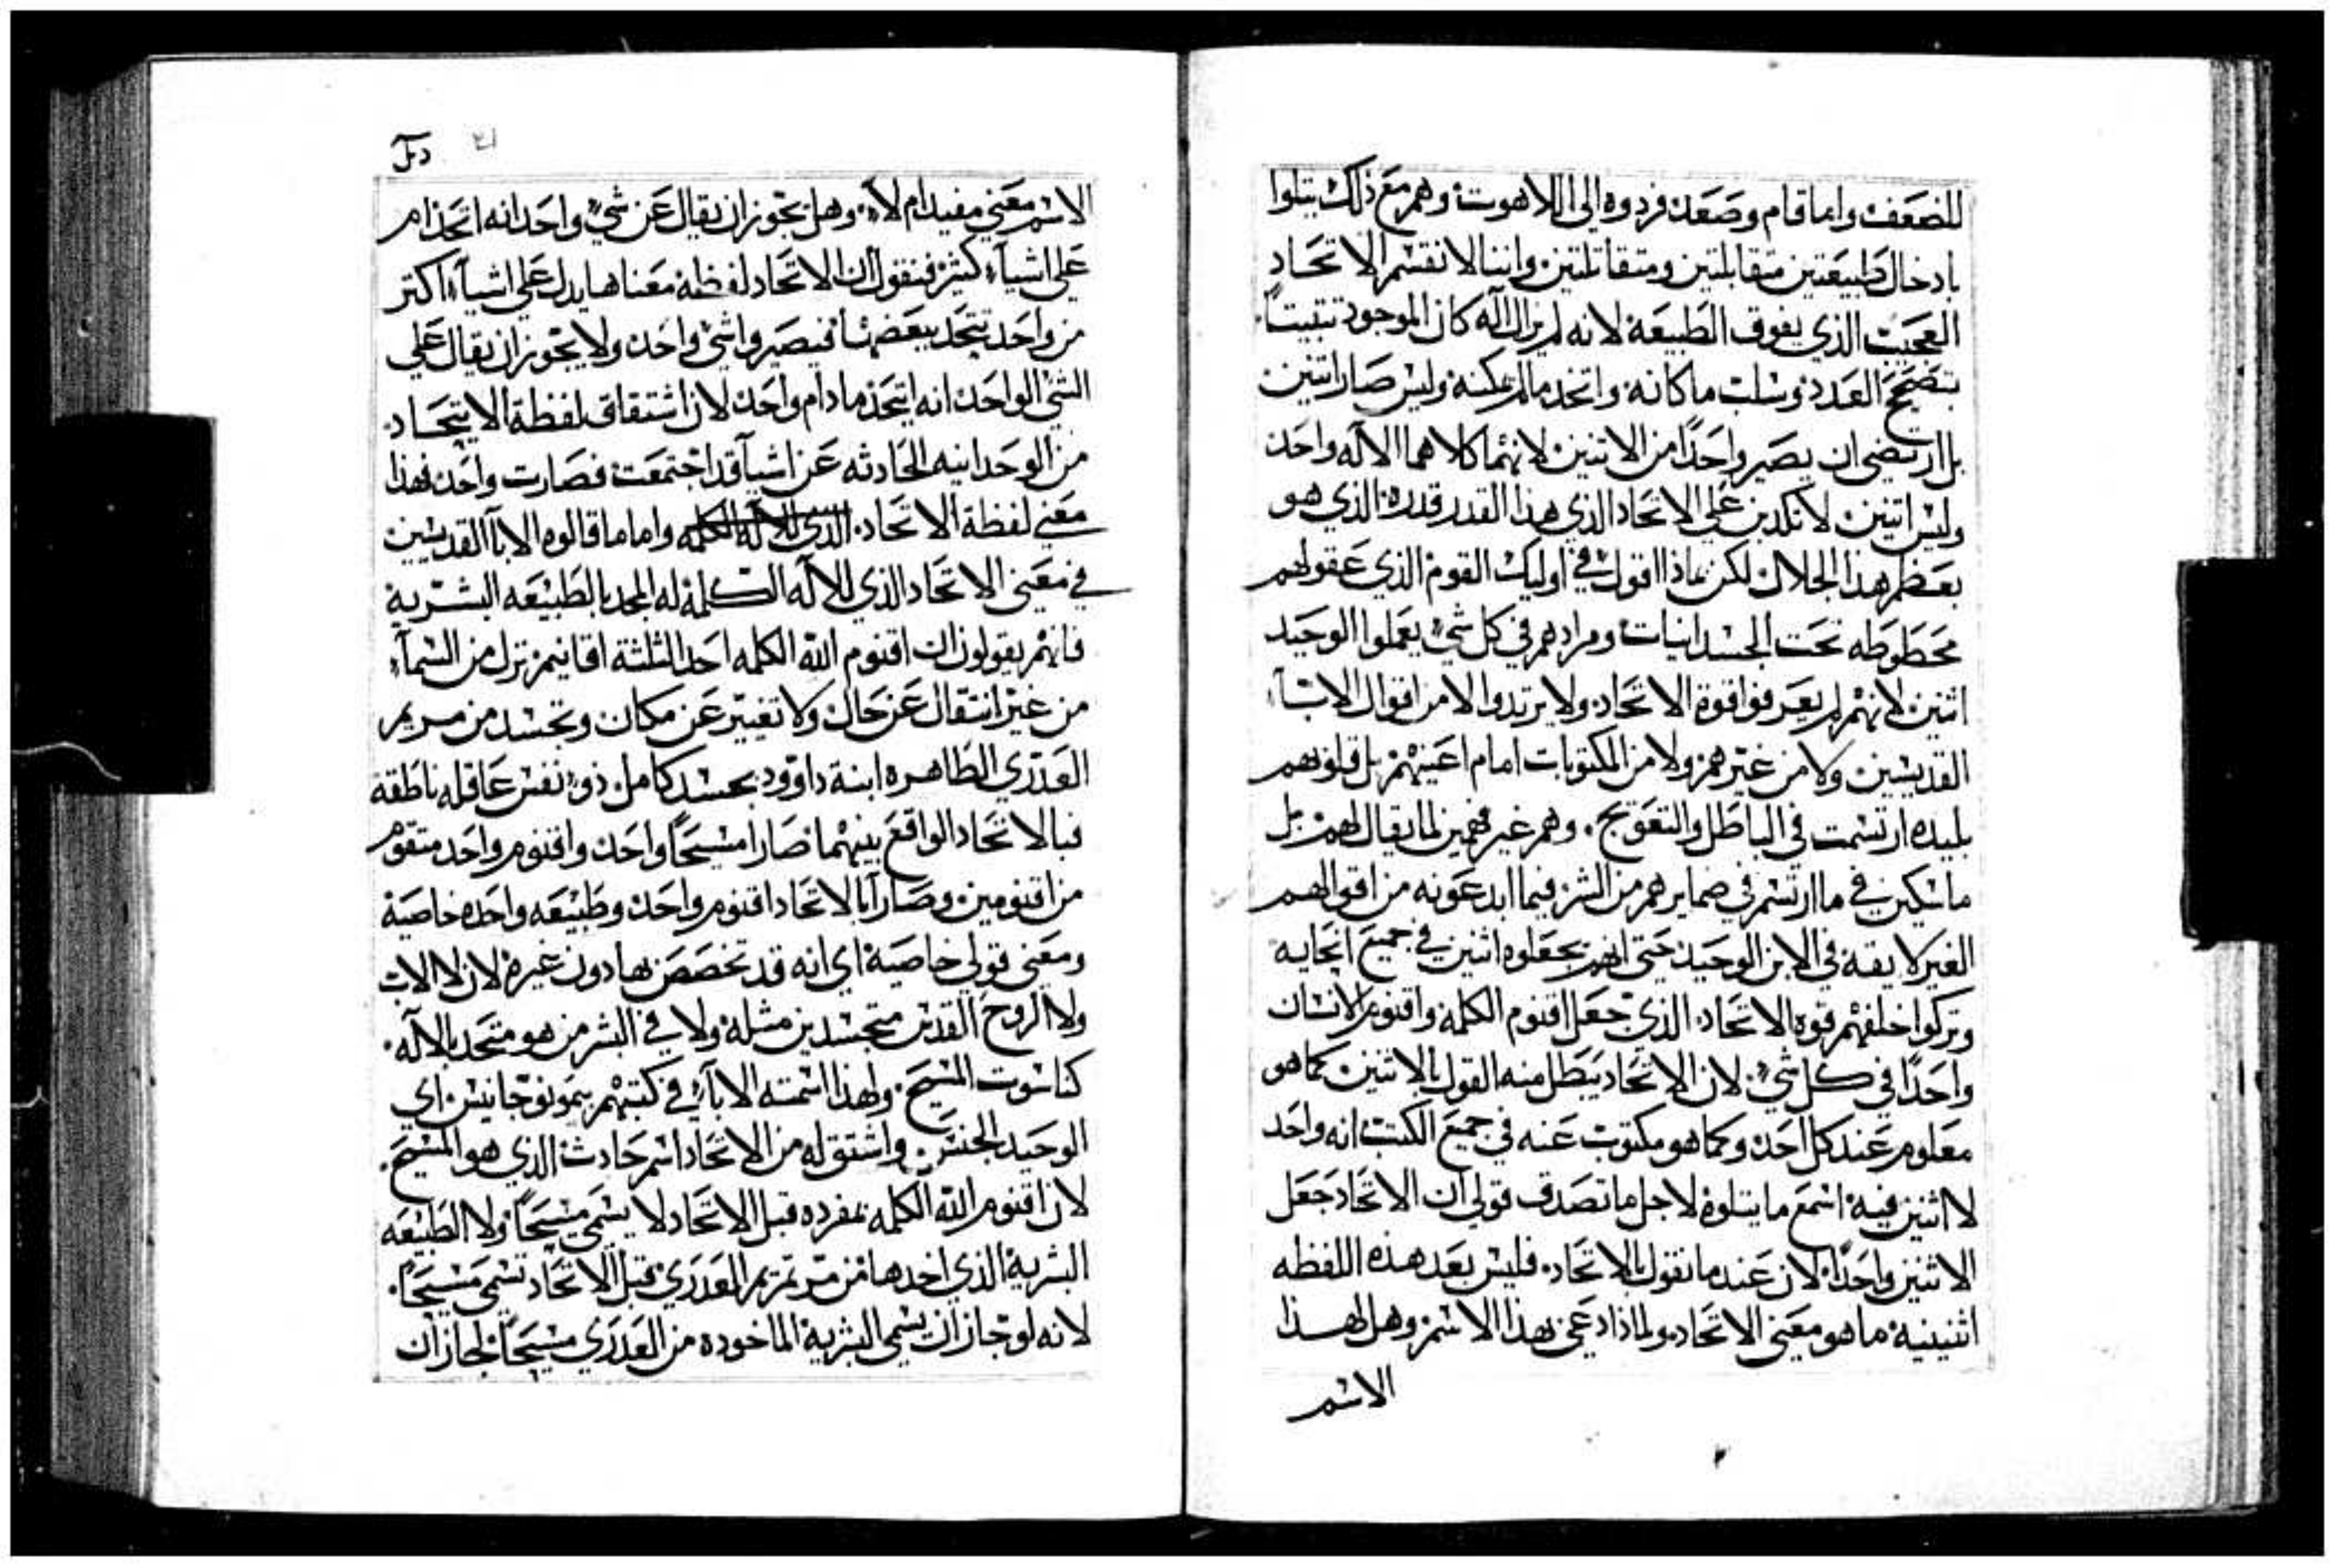 للضعف واما قام وصعد فردوه الى اللاهوت وهم مع ذلك يتلوا
بادخال طبيعتين متقابلتين ومتقاتلتين واننا لا نقسم الاتحاد
العجيب الذي يفوق الطبيعة لانه لم يزال اله كان الموجود تثبيتاً
بتصحيح العدد وسلب ما كانه واتخد ما لم يكنه وليس صار اتنين
بل ارتضى ان يصير واحدًا من الاتنين لانهما كلاهما الاله واحد
وليس اتنين لا تكدبن على الاتحاد الذي هذا القدر قدره الذي هو
بعظم هذا الجلال لكن بماذا اقول في اوليك القوم الذي عقولهم
محطوطه تحت الجسدانيات ومرادهم في كل شيء يعملوا الوحيد
اثنين لانهم لم يعرفوا قوة الاتحاد ولا يرتدوا لا من اقوال الابآء
القديسين ولا من غيرهم ولا من المكتوبات امام اعينهم بل قلوبهم
بليده ارتسمت في الباطل والتعويج وهم غير فهمين لما يقال لهم بل
ماسكين في ما ارتسم في ضمايرهم من الشر فيما ابدعونه من اقوالهم
الغير لايقة في الابن الوحيد حتى انهم يجعلوه اثنين في جميع انحايه
وتركوا خلفهم قوة الاتحاد الذي جعل اقنوم الكلمه واقنوم الانسان
واحدًا في كل شيء لان الاتحاد يبطل منه القول بالاثنين كما هو
معلوم عند كل احد وكما هو مكتوب عنه في جميع الكتب انه واحد
لا اثنين فيه اسمع ما يتلوه لاجل ما تصدق قولي ان الاتحاد جعل
الاثنين واحدًا لان عندما نقول بالاتحاد فليس بعد هذه اللفظه
اثنينية ما هو معنى الاتحاد ولماذا دعي بهذا الاسم وهل لهذا
الاسم
الاسم معني مفيد ام لا وهل يجوز ان يقال عن شيء واحد انه اتحد ام
على اشيآء كثيره فنقول ان الاتحاد لفظة معناها يدل على اشيآء اكتر
من واحد تتحد ببعضها فيصيروا شي واحد ولا يجوز ان يقال على
الشي الواحد انه اتحد مادام واحد لان اشتقاق لفظة الاتحاد
من الوحدانيه الحادثه عن اشيآ قد اجتمعت فصارت واحد فهذا
معني لفظة الاتحاد الذي للاله الكلمه واما ما قالوه الابآ القديسين
في معنى الاتحاد الذي للاله الكلمة له المجد بالطبيعه البشرية
فانهم يقولون ان اقنوم الله الكلمه احد الثلثة اقانيم نزل من السمآء
من غير انتقال عن حال ولا تغيير عن مكان وتجسد من مريم
العدرى الطاهره ابنة داوود بجسد كامل ذو نفس عاقله ناطقة
فبالاتحاد الواقع بينهما صارا مسيحًا واحد واقنوم واحد متقوم
من اقنومين وصارا بالاتحاد اقنوم واحد وطبيعه واحده خاصية
ومعنى قولي خاصية اي انه قد تخصص بها دون غيره لان لا الاب
ولا الروح القدس متجسدين مثله ولا في البشر من هو متحد بالاله
كناسوت المسيح ولهذا اسمته الابآء في كتبهم بمونوجانيس اي
الوحيد الجنس واشتق له من الاتحاد اسم حادث الذي هو المسيح
لان اقنوم الله الكلمه بمفرده قبل الاتحاد لا يسمى مسيحًا ولا الطبيعه
البشرية الذي اخدها من مرتمريم العدرى قبل الاتحاد تسمى مسيحًا
لانه لو جاز ان يسمى البشرية الماخوده من العدرى مسيحًا لجاز ان